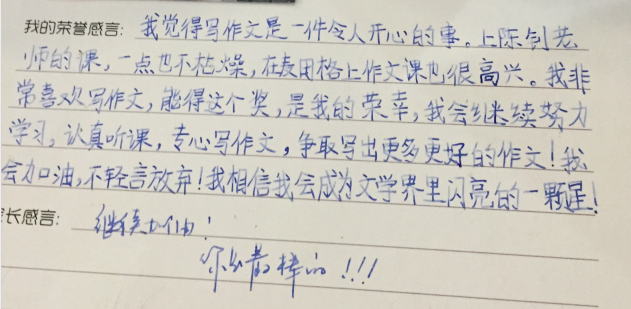 我的荣誉感言：我觉得写作文是一件令人开心的事。上陈剑老
师的课，一点也不枯燥，在友田格上作文课也很高兴。我非
常喜欢写作文，能得这个奖，是我的荣幸，我会继续努力
学习，认真听课，专心写作文，争取写出更多更好的作文！我
会加油，不轻言放弃！我相信我会成为文学界里闪亮的一颗星！
长感言：继续加油！
你是最棒的！！！